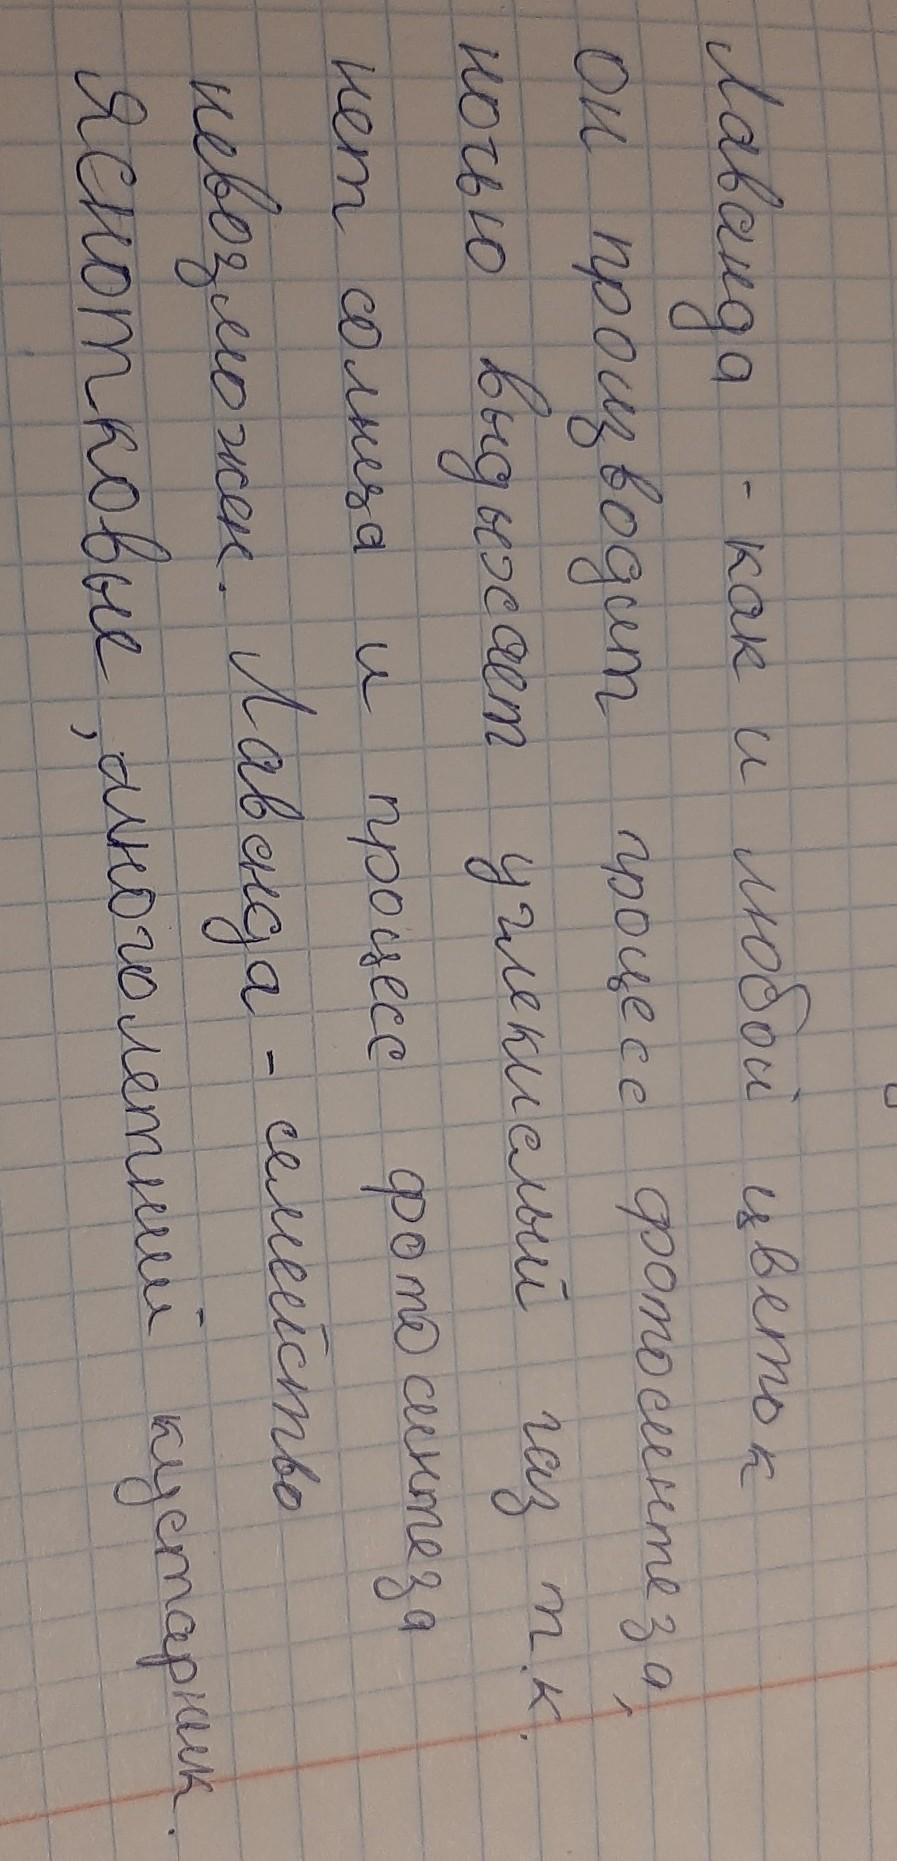 Лаванда - как и любой цветок
он производит процесс фотосинтеза,
ночью выдыхает углекислый газ т.к.
нет солнца и процесс фотосинтеза
невозможен. Лаванда - семейство
Яснотковые, многолетний кустарник.